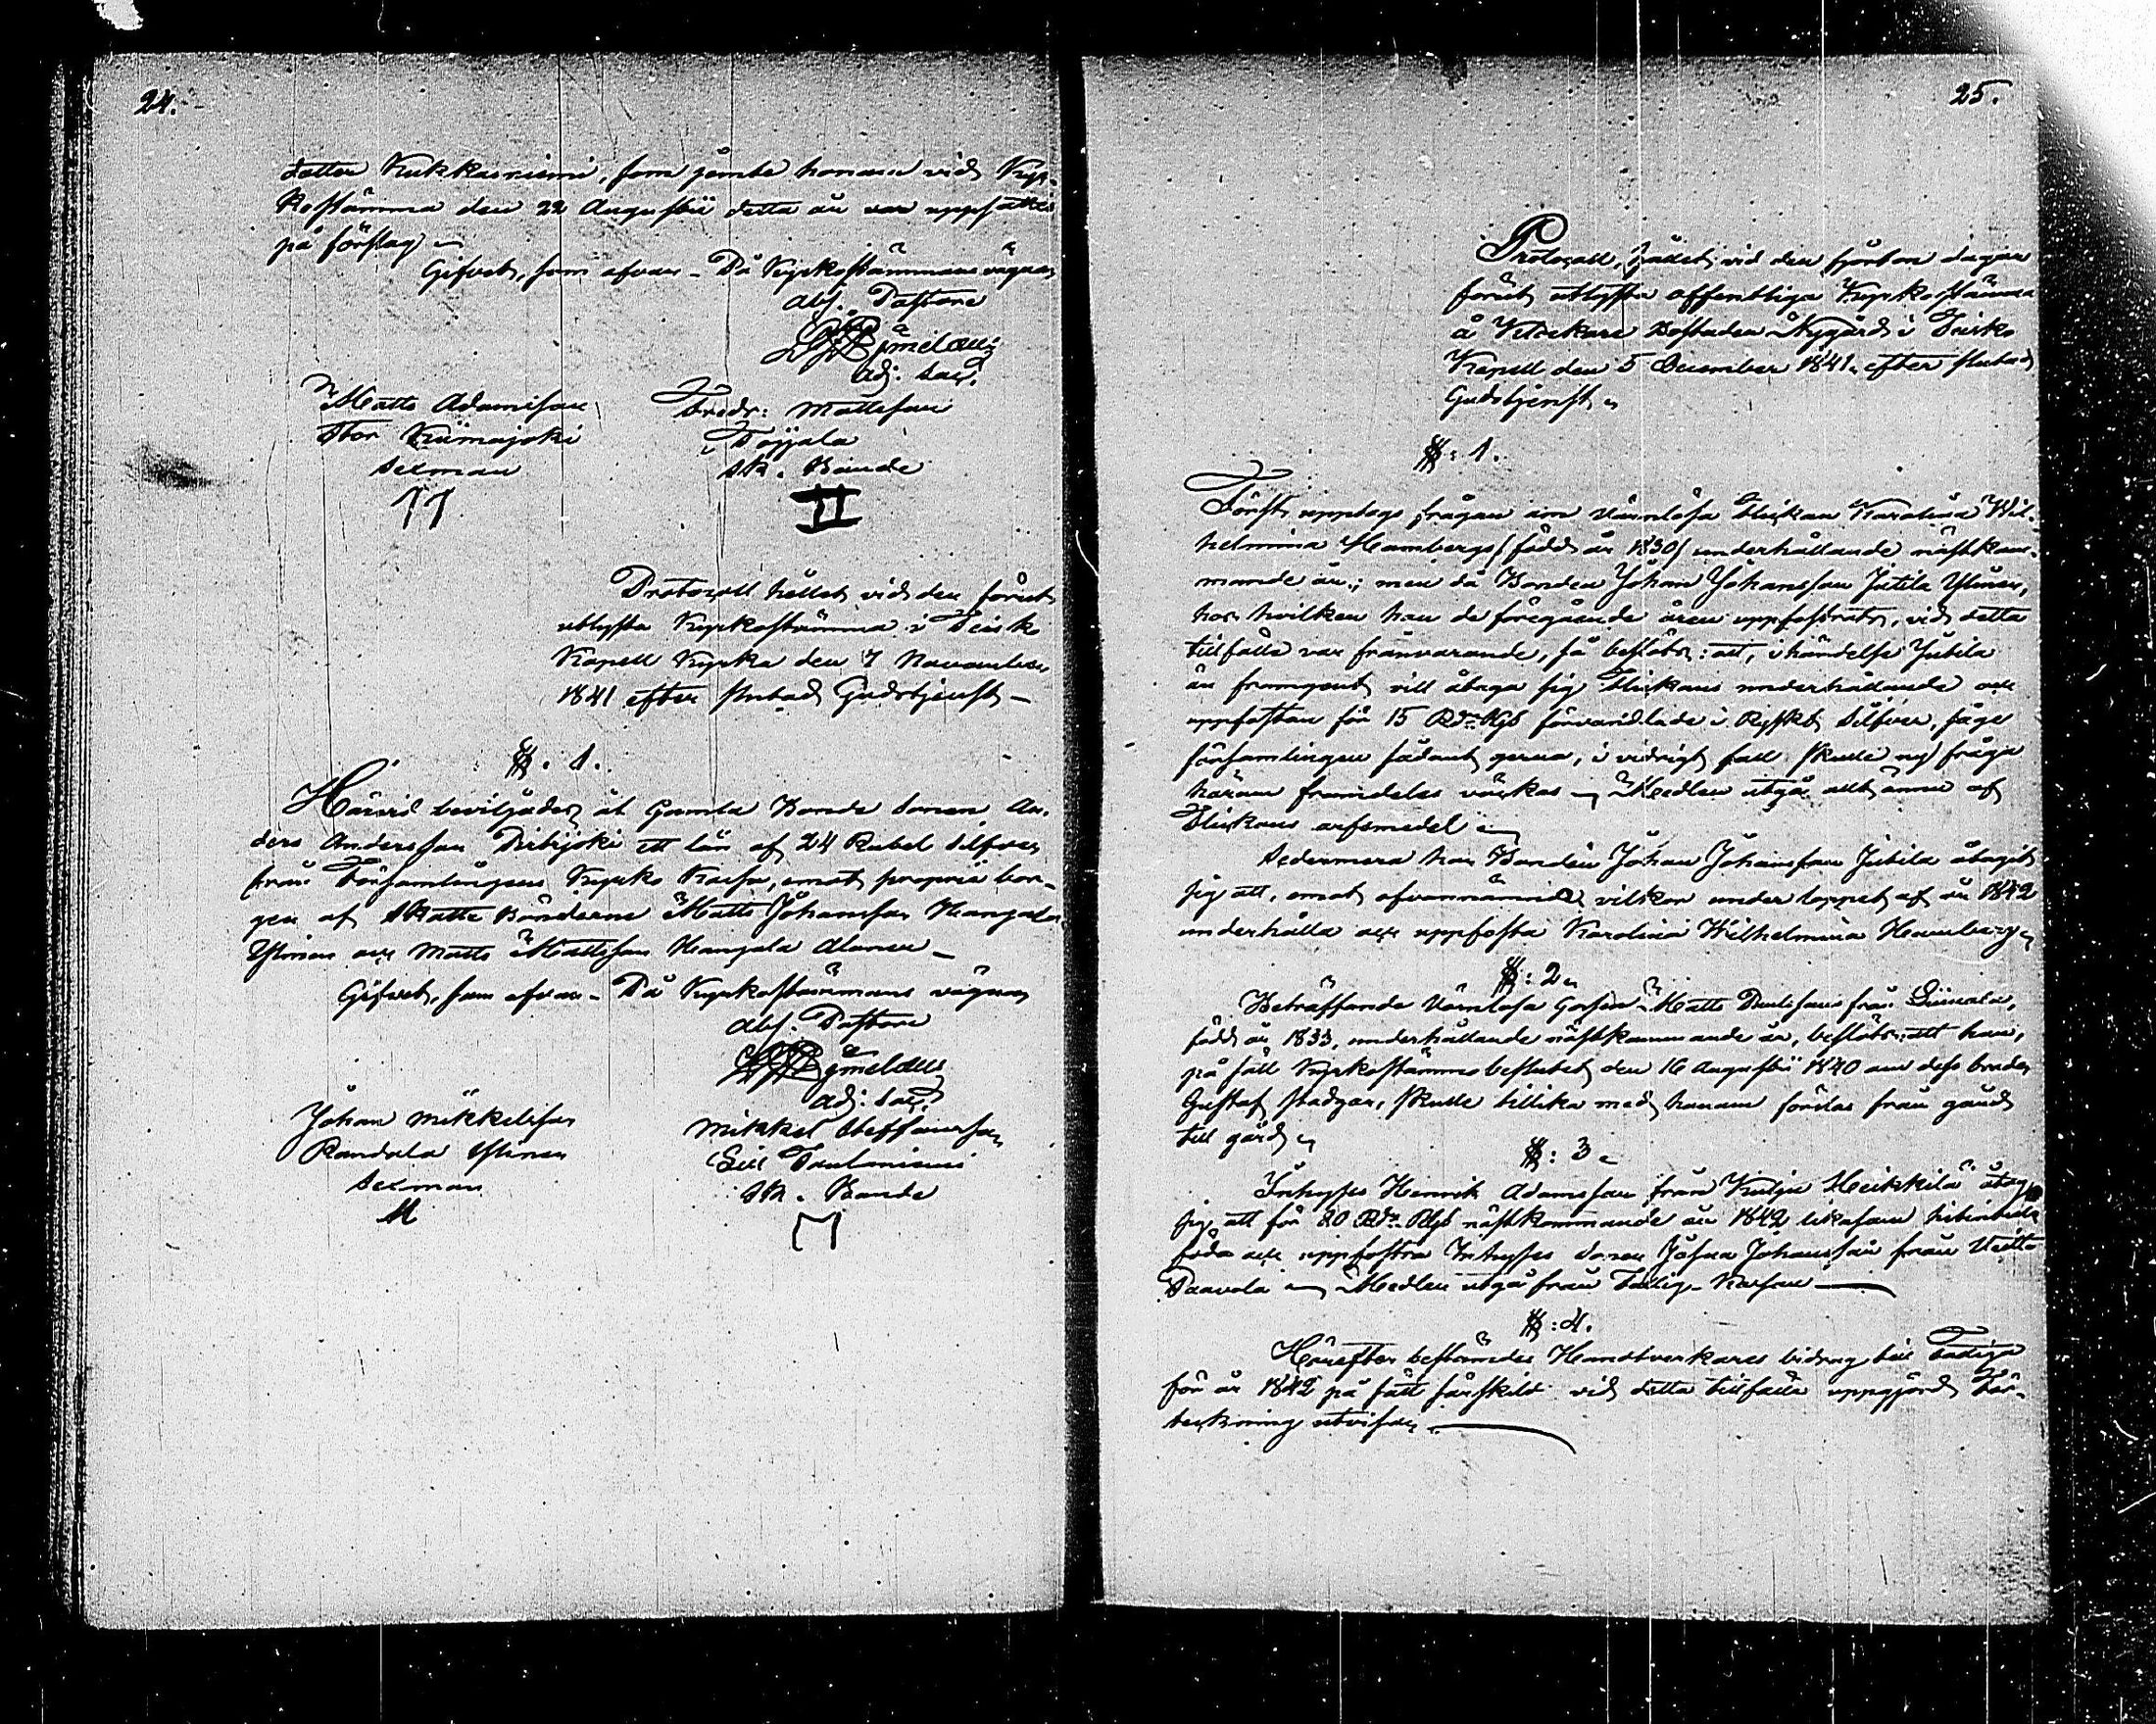 24.
dotter Kukkoniemi, som jemte honom vid Kyr-
kostämma den 22 Augustii detta år var uppsatte
på förslag
Gifvet, som ofvan - På Kyrkostämmans vägnar
abs. Pastore
adj: Sac.
Matts Adamsson
Stor Kiimajoki
Sexman
Fredr: Mattsson
Pöyjala
Sk. Bonde
Protocoll hållet vid den förut
utlysta Kyrkostämma i Teisko
Kapell Kyrka den 7 November
1841 efter slutad Gudstjenst -
§. 1.
Härvid beviljades åt Gamla Bonde Sonen An-
ders Andersson Pirtijoki ett lån af 24 Rubel Silfver
från Församlingens Kyrko Kassa, emot proprie bor-
gen af Skatte Bönderne Matts Johansson Kangala
Ylinen och Matts Mattsson Kangala Alanen -
Gifvet, som ofvan - På Kyrkostämmans vägnar
abs. Pastore
adj: Sac.
Johan Mikkelsson
Pandala Ylinen
Sexman
Mikkel Steffansson
Paulaniemi
Sk. Bonde
25.
Protocoll, hållet vid den fjorton dagar
förut utlysta offentliga Kyrkostämma
å Vitickare Bostaden Nygård i Teisko
Kapell den 5 December 1841, efter slutad
Gudstjenst
§: 1.
Först upptogs frågan om värnlösa Flickan Karolina Wil-
helmina Hambergs (född år 1830) underhållande nästkom-
mande år; men då Bonden Johan Johansson Jutila Ylinen,
hos hvilken hon de föregående åren uppfostrats, vid detta
tillfälle var frånvarande, så beslöts: att, i händelse Jutila
än framgent vill åtaga sig Flickans underhållande och
uppfostran för 15 Rdr Rgs förvandlade i Ryskt Silfver, såge
församlingen sådant gerna, i vidrigt fall skulle ny fråga
härom framdeles väckas - Medlen utgå allt ännu af
Flickans arfsmedel
Sedermera har Bonden Johan Johansson Jutila åtagit
sig att, emot ofvannämnde vilkor under loppet af år 1842
underhålla och uppfostra Karolina Wilhelmina Hamberg
§: 2
Beträffande Värnlösa Gossen Matts Paulssons från
född år 1833, underhållande nästkommande år, beslöts: att han,
på sätt Kyrkostämmobeslutet den 16 Augustii 1840 om dess broder
Gustaf stadgar, skulle tillika med honom födas från gård
till gård
§: 3
Inhyses Henrik Adamsson från Kulju Heikkilä åtog
sig att för 20 Rdr Rgs nästkommande år 1842 likasom hitintills
föda och uppfostra Inhyses Sonen Josua Johansson från
Paavola - Medlen utgå från Fattig-Kassan
§: 4.
Härefter bestämdes Handtverkares bidrag till Fattiga
för år 1842 på sätt särskild vid detta tillfälle uppgjord För-
teckning utvisar